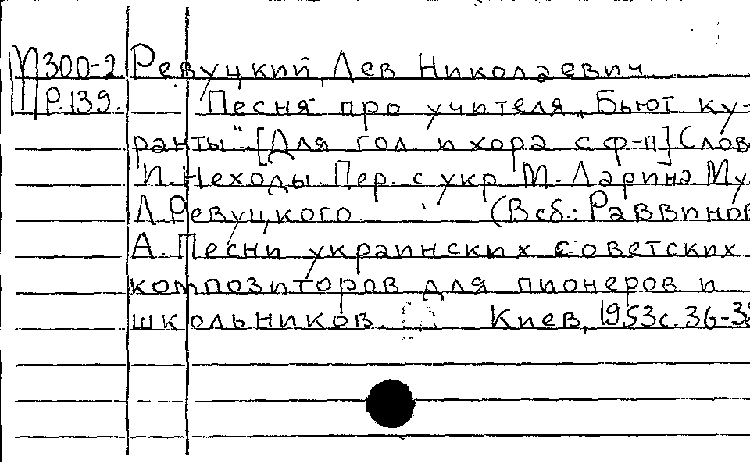 М300-2 Ревуцкий, Лев Николаевич
Р.139. Песня про учителя. „Бьют ку-
ранты". [Для гол и хора с ф-п] Слов
И. Неходы Пер. с укр М. Ларина Му
Л. Ревуцкого (В сб.: Раввинов
А. Песни украинских советских
композиторов для пионеров и
школьников. Киев, 1953 с. 36-3